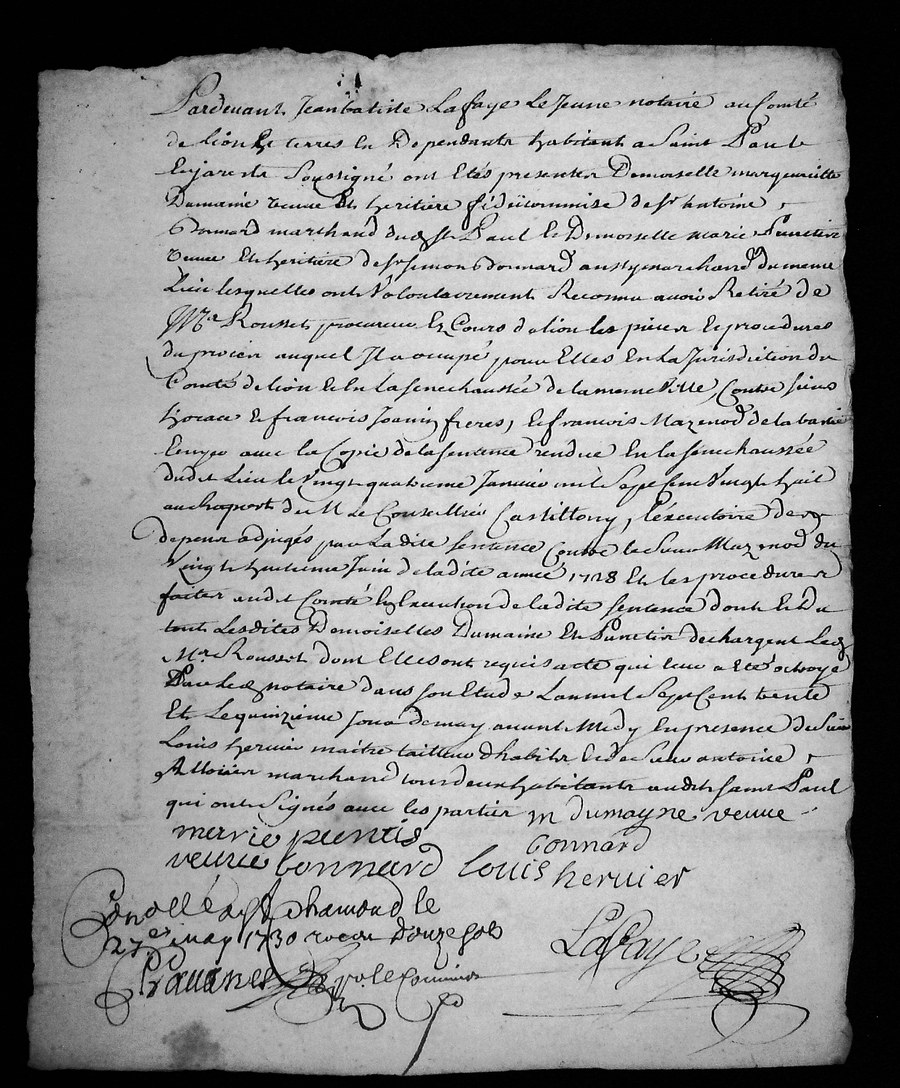 Pardevant Jeanbatiste Lafaye Le Jeune notaire au Comté
de lion Et terres En Dependants habitant a Saint Paul
Enjarests Soussigné ont Etés presentes Demoiselle margueritte
Dumaine veuve Et heritière fidéicommise de Sr antoine
Bonnard marchand dud St Paul Et Demoiselle marie Punctis
veuve Et heritière de Sr Simon Bonnard aussy marchand du meme
Lieu lesquelles ont Volontairement Reconnu avoir Retiré de
Mre Rousset procureur Es Cours de lion les pieces Et procedures
du procès auquel Il a occupé pour Elles En La Jurisdiction du
Comté de lion Et En La Senechaussée de la meme Ville, Contre sieurs
horace Et francois Joanin freres, Et francois Mazenod de la bastie
Ensemble avec la Copie de la sentence rendue En la senechaussée
dudt Lieu le Vingt quatrieme Janvier mil Sept Cent Vingt huit
au Raport de Mr le Conseiller Castillony, l'executoire des
depens adjugés par Ladite sentence Contre le Sieur Mazenod du
Vingt huitieme Juin de ladite année 1728 Et les procedures
faites audt Comté En Execution de ladite sentence dont Et du
tout Lesdites Demoiselles Dumaine Et Punctis dechargent Led
Mre Rousset dont Elles ont requis acte qui leur a Eté octroyé
Par Led notaire dans son Etude L'an mil Sept Cent trente
Et Le quinzieme Jour de may avant Midy En presence de Sieur
Louis hervier maitre tailleur d'habits Et de Sieur antoine
Alloüer marchand tous deux habitants audit Saint Paul
qui ont Signés avec les parties m dumayne veuve
marie puntis bonnard
veuve bonnard louis hervier
Controllé a St Chamond le
27e may 1730 recu douze sols
Lafaye